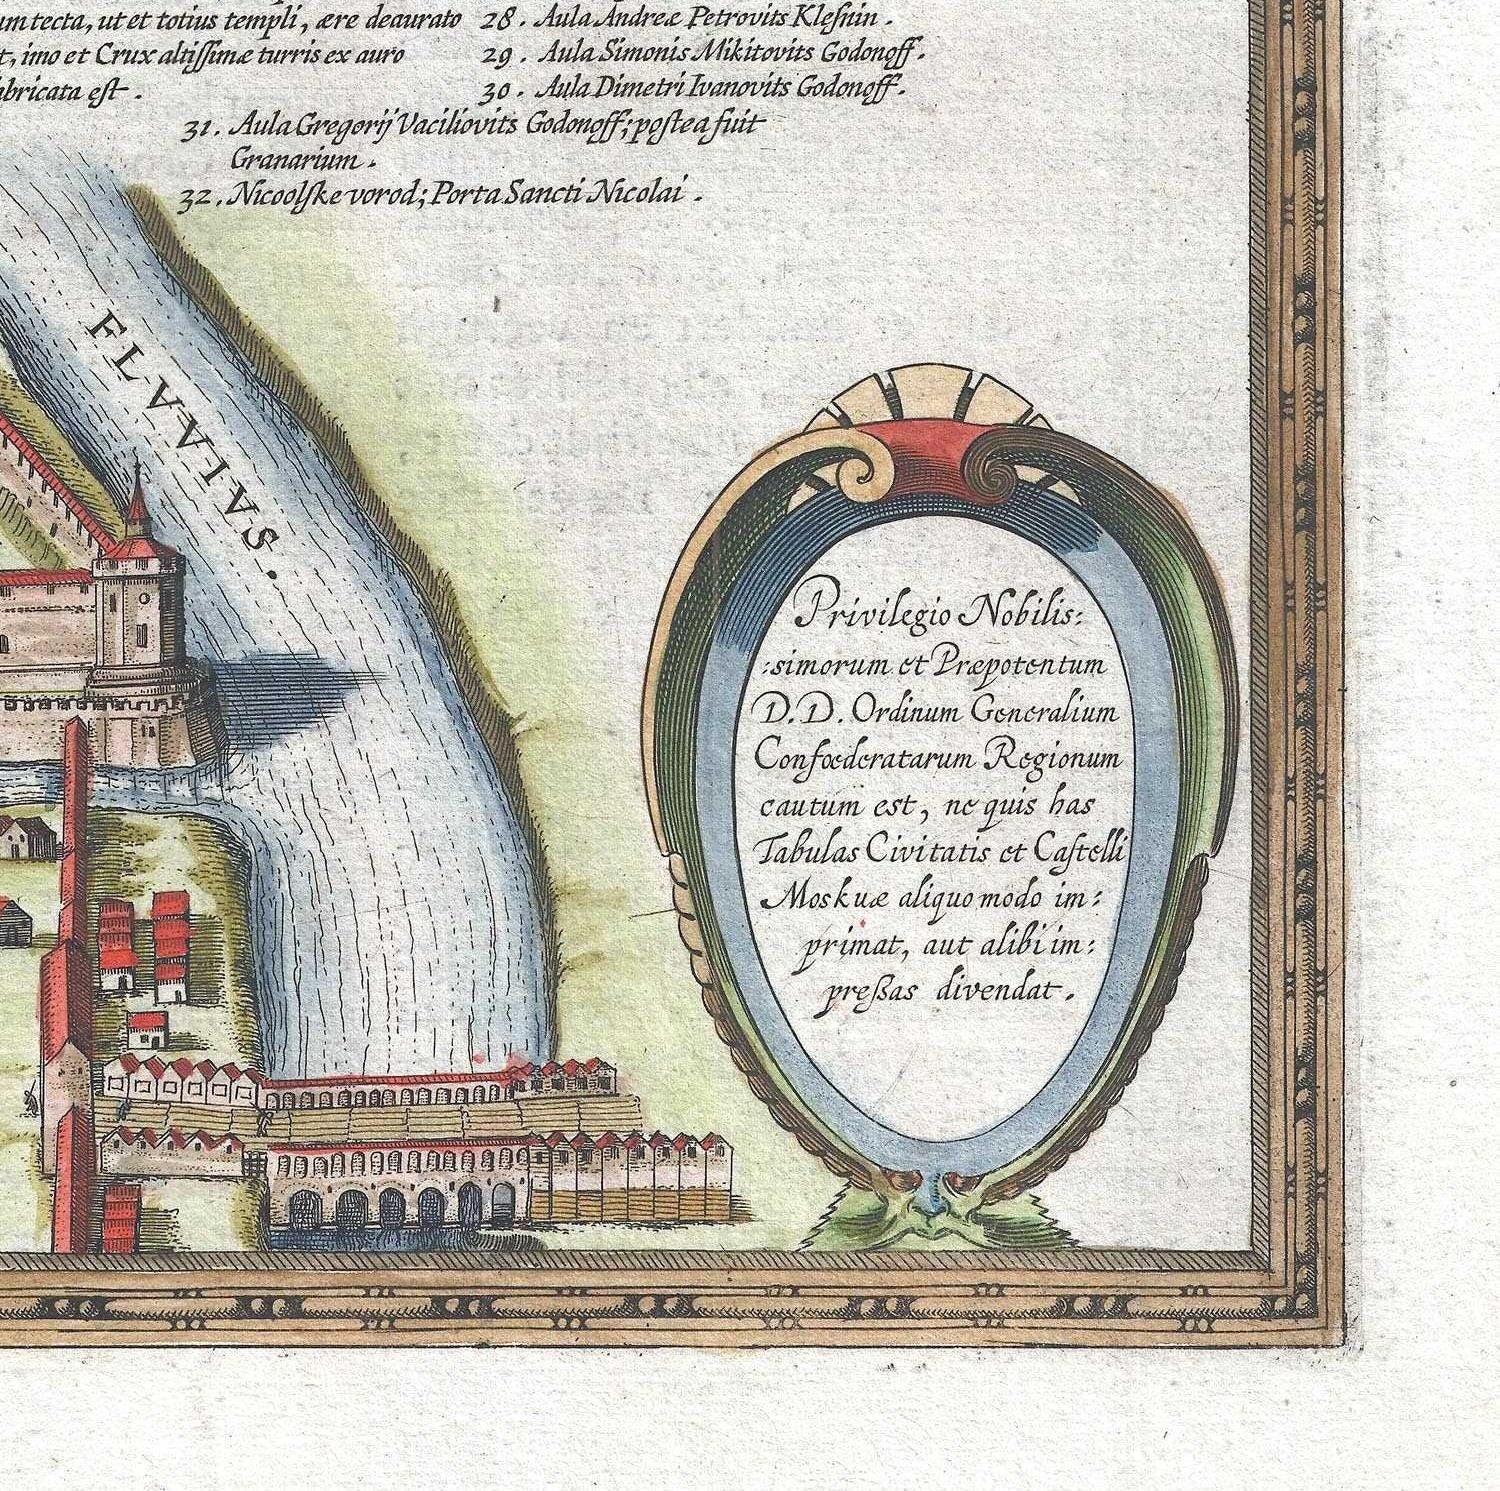 tecta, ut et totius templi, ære deaurato
28. Aula Andreæ Petrovits Klesnin.
t, imo et Crux altissimæ turris ex auro
29. Aula Simonis Mikitovits Godonoff.
bricata est.
30. Aula Dimetri Ivanovits Godonoff.
31. Aula Gregorij Vaciliovits Godonoff; postea fuit
Granarium.
32. Nicoolske vorod; Porta Sancti Nicolai.
FLVVIVS.
Privilegio Nobilis:
:simorum et Præpotentum
D.D. Ordinum Generalium
Confœderatarum Regionum
cautum est, ne quis has
Tabulas Civitatis et Castelli
Moskuæ aliquo modo im:
primat, aut alibi im:
preßas divendat.